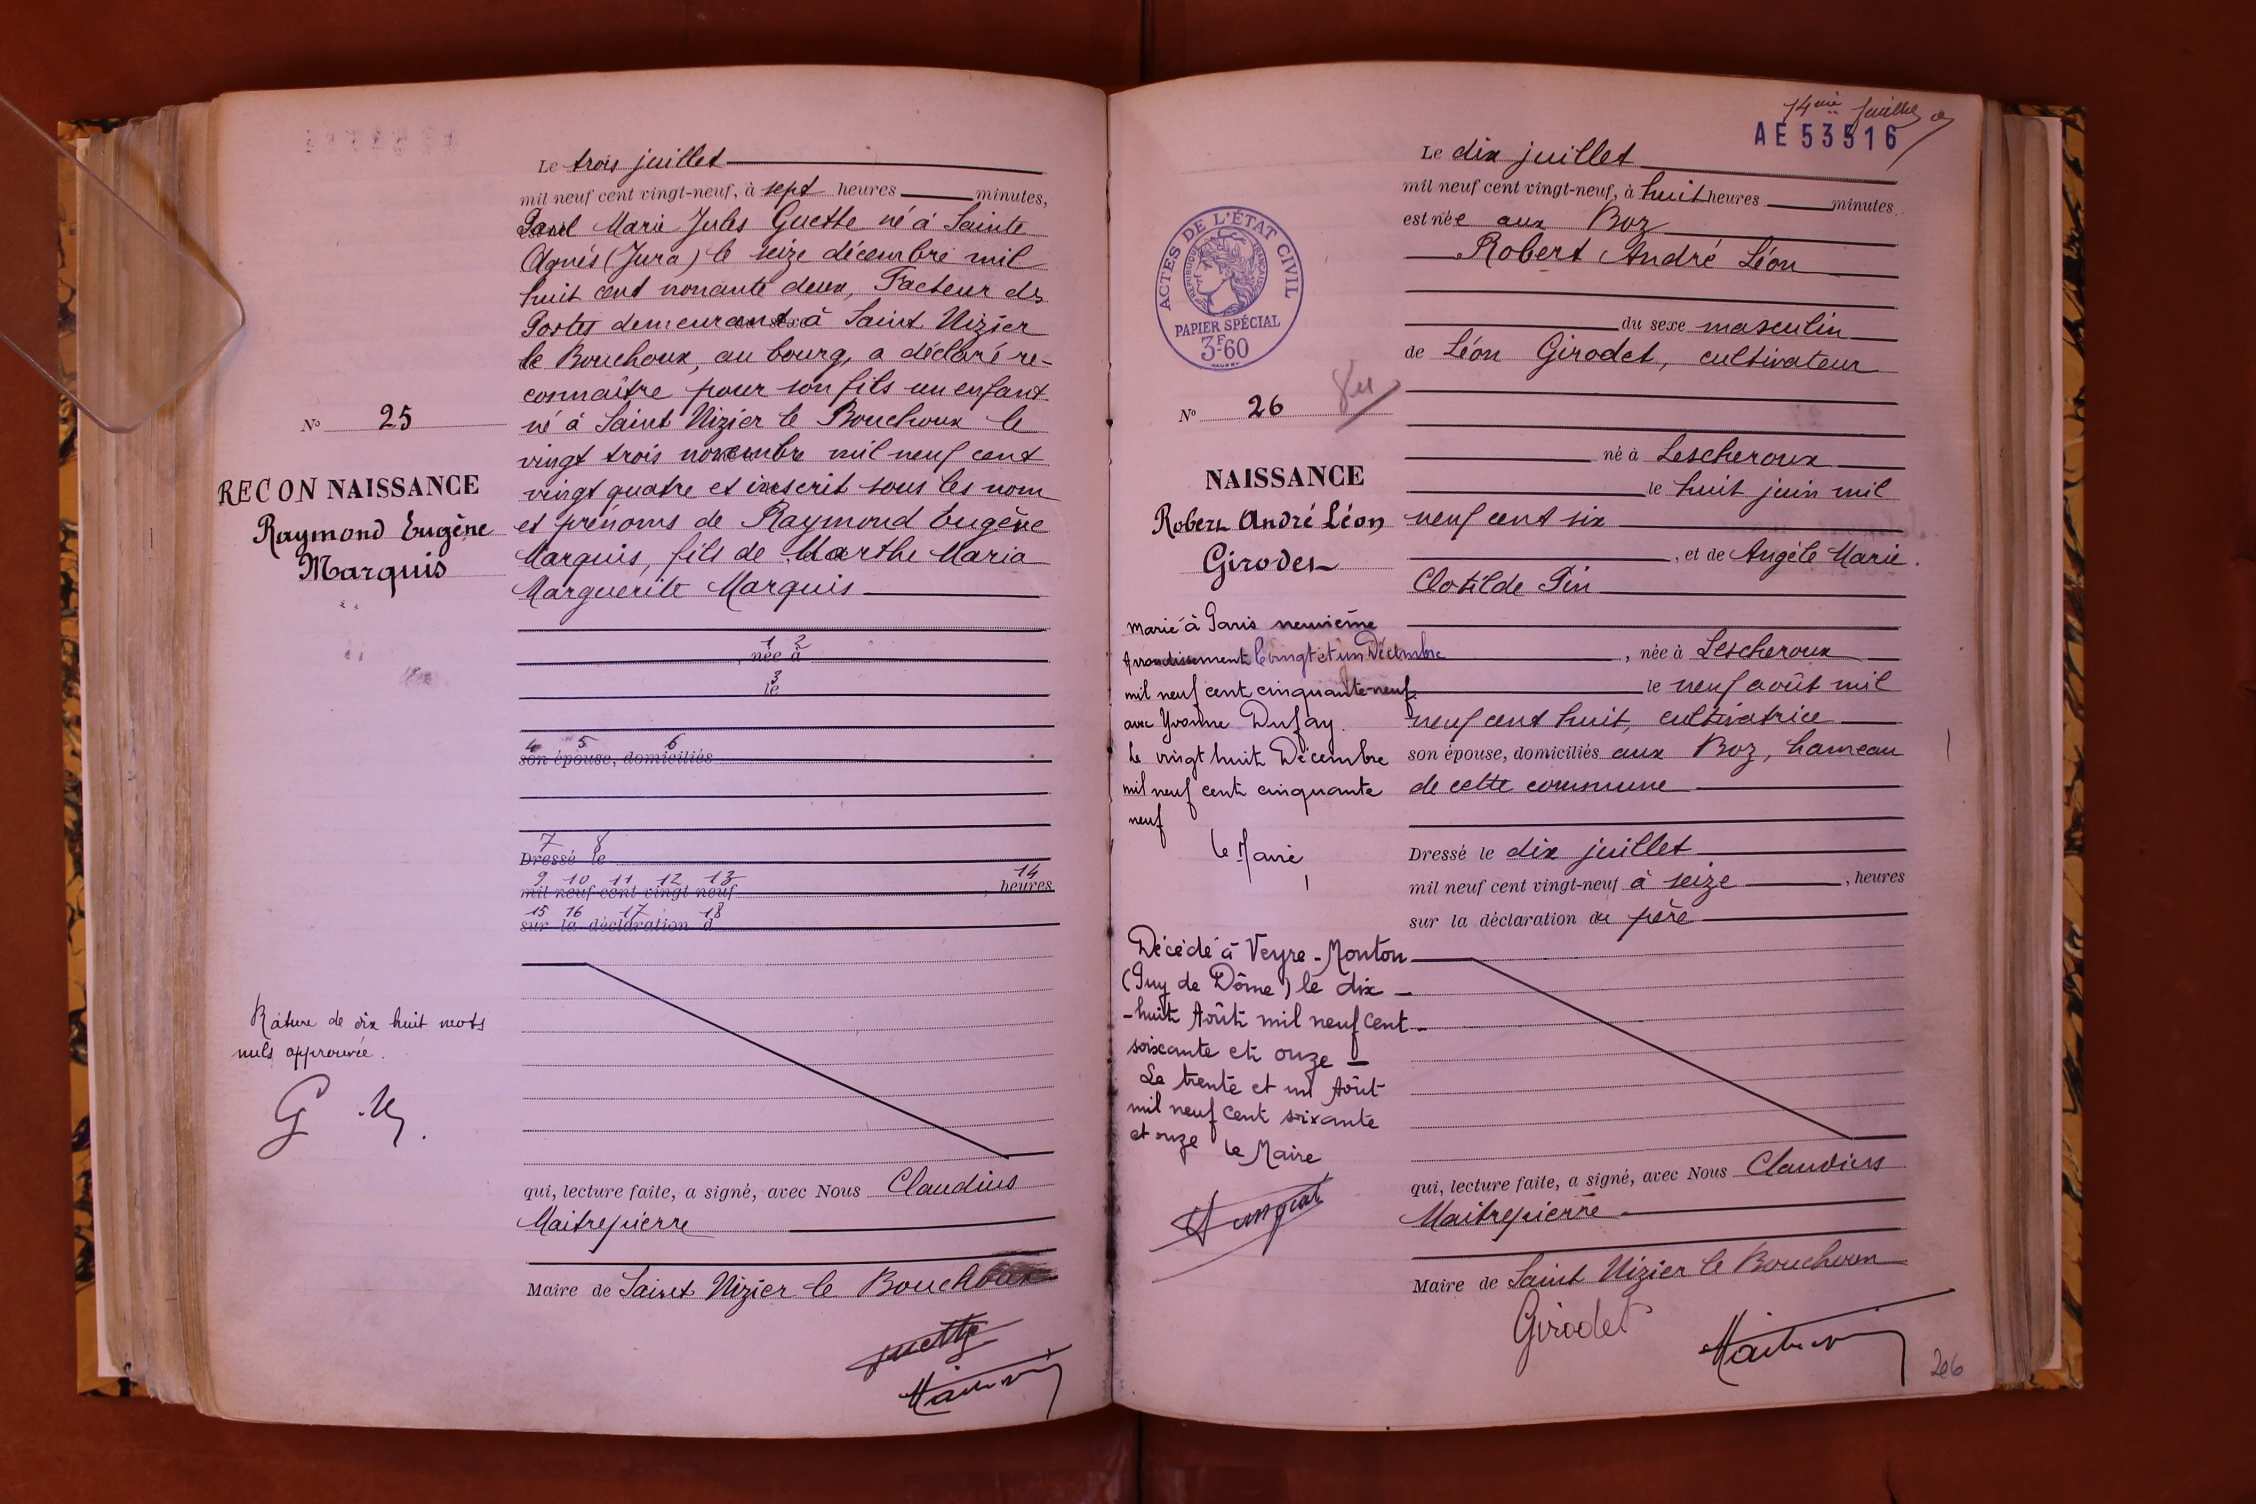 Le trois juillet
mil neuf cent vingt-neuf, à sept heures minutes,
Paul Marie Jules Guette né à Sainte
Agnès (Jura) le seize décembre mil
huit cent nonante deux, Facteur des
Postes demeurant à Saint Nizier
le Bouchoux, au bourg, a déclaré re-
connaître pour son fils un enfant
né à Saint Nizier le Bouchoux le
vingt trois novembre mil neuf cent
vingt quatre et inscrit sous les nom
et prénoms de Raymond Eugène
Marquis, fils de Marthe Maria
Marguerite Marquis
N° 25
RECONNAISSANCE
Raymond Eugène
Marquis
1 2
, née à
3
le
4 5 6
son épouse, domiciliés
7 8
Dressé le
9 10 11 12 13 14
mil neuf cent vingt-neuf , heures
15 16 17 18
sur la déclaration d
Rature de dix huit mots
nuls approuvée.
G M
qui, lecture faite, a signé, avec Nous Claudius
Maitrepierre
Maire de Saint Nizier le Bouchoux
Guette
14me feuillet
AE 53516
Le dix juillet
mil neuf cent vingt-neuf, à huit heures minutes
est née aux Boz
Robert André Léon
du sexe masculin
de Léon Girodet, cultivateur
né à Lescheroux
le huit juin mil
neuf cent six
, et de Angèle Marie
Clotilde Pin
, née à Lescheroux
le neuf août mil
neuf cent huit, cultivatrice
son épouse, domiciliés aux Boz, hameau
de cette commune
Dressé le dix juillet
mil neuf cent vingt-neuf à seize , heures
sur la déclaration du père
qui, lecture faite, a signé, avec Nous Claudius
Maitrepierre
Maire de Saint Nizier le Bouchoux
Girodet
206
ACTES DE L'ÉTAT CIVIL
RÉPUBLIQUE FRANÇAISE
PAPIER SPÉCIAL
3F60
N° 26
NAISSANCE
Robert André Léon
Girodet
Marié à Paris neuvième
Arrondissement le vingt et un Décembre
mil neuf cent cinquante-neuf
avec Yvonne Dufay.
Le vingt huit Décembre
mil neuf cent cinquante
neuf
Le Maire,
Décédé à Veyre-Monton
(Puy de Dôme) le dix-
-huit Août mil neuf cent-
soixante et onze -
Le trente et un Août
mil neuf cent soixante
et onze Le Maire